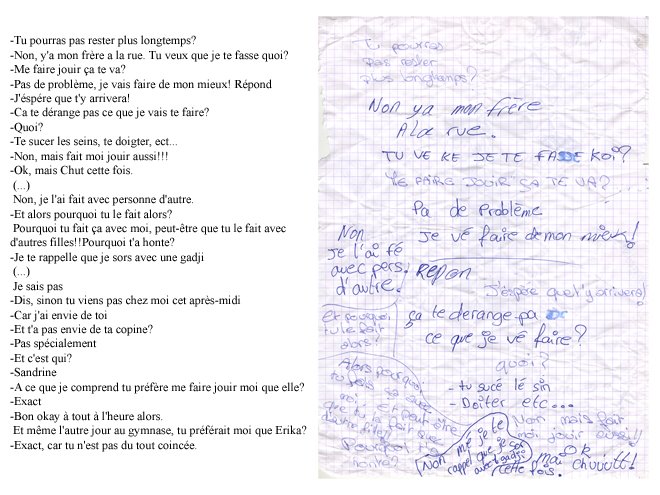 -Tu pourras pas rester plus longtemps?
-Non, y'a mon frère a la rue. Tu veux que je te fasse quoi?
-Me faire jouir ça te va?
-Pas de problème, je vais faire de mon mieux! Répond
-J'éspére que t'y arrivera!
-Ca te dérange pas ce que je vais te faire?
-Quoi?
-Te sucer les seins, te doigter, ect...
-Non, mais fait moi jouir aussi!!!
-Ok, mais Chut cette fois.
(...)
Non, je l'ai fait avec personne d'autre.
-Et alors pourquoi tu le fait alors?
Pourquoi tu fait ça avec moi, peut-être que tu le fait avec
d'autres filles!!Pourquoi t'a honte?
-Je te rappelle que je sors avec une gadji
(...)
Je sais pas
-Dis, sinon tu viens pas chez moi cet après-midi
-Car j'ai envie de toi
-Et t'a pas envie de ta copine?
-Pas spécialement
-Et c'est qui?
-Sandrine
-A ce que je comprend tu préfère me faire jouir moi que elle?
-Exact
-Bon okay à tout à l'heure alors.
Et même l'autre jour au gymnase, tu préférait moi que Erika?
-Exact, car tu n'est pas du tout coincée.
Tu pourras
pas rester
plus longtemps?
Non ya mon frère
A la rue.
TU VE KE JE TE FASSE KOI?
ME FAIRE JOUIR ÇA TE VA?
Pa de problème
Je vé faire de mon mieux!
Repon
Non
je l'ai fé
avec pers.
d'autre.
J'éspère que t'y arrivera!
ça te derange pa
ce que je vé faire?
Et pourquoi
tu le fait
alors?
quoi?
- tu sucé lé sin
- Doiter etc...
Alors pourquoi
tu fais sa avec
moi, et peut être
que tu le fait que
d'autre filles
Pourquoi t'a
honte?
Non mais fait
moi jouir aussi!!
Non mé je te
rappel que je sor
avec 1 gadji
Ok
mai chuuutt!
cette fois.